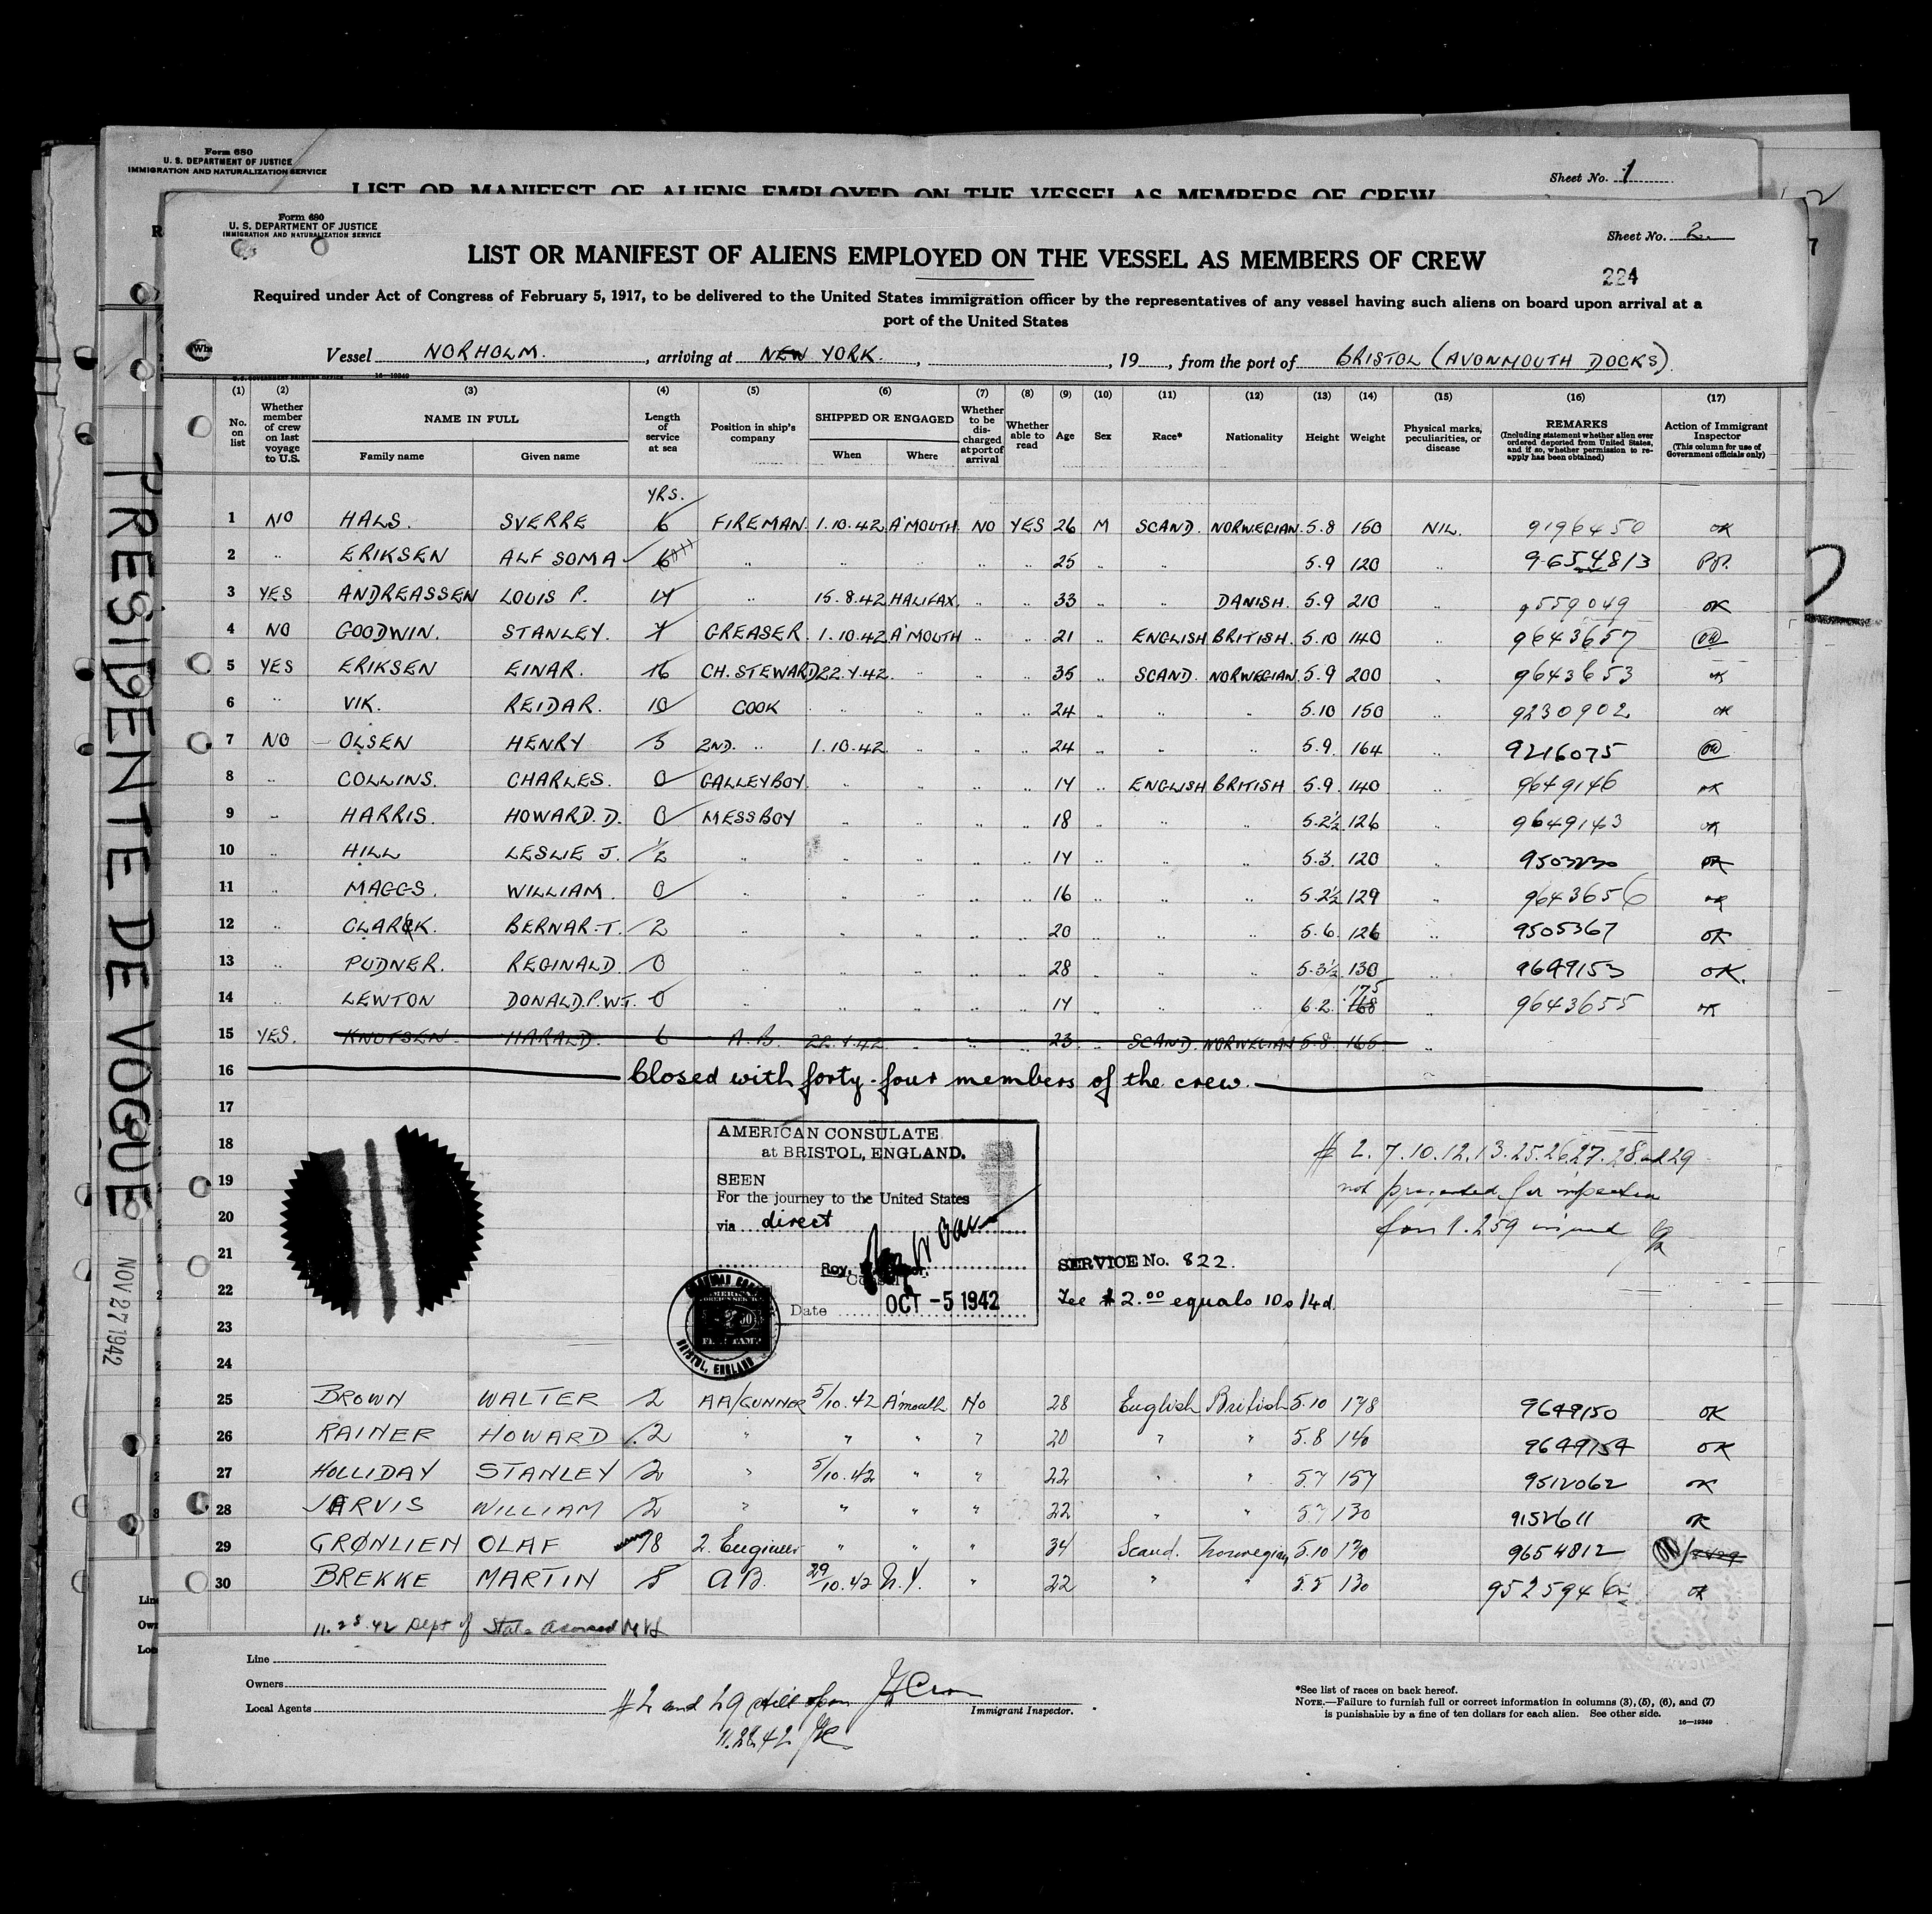 Form 680
U. S. DEPARTMENT OF JUSTICE
IMMIGRATION AND NATURALIZATION SERVICE
Sheet No. 1
LIST OR MANIFEST OF ALIENS EMPLOYED ON THE VESSEL AS MEMBERS OF CREW
Form 680
U. S. DEPARTMENT OF JUSTICE
IMMIGRATION AND NATURALIZATION SERVICE
Sheet No. 2
LIST OR MANIFEST OF ALIENS EMPLOYED ON THE VESSEL AS MEMBERS OF CREW
224
Required under Act of Congress of February 5, 1917, to be delivered to the United States immigration officer by the representatives of any vessel having such aliens on board upon arrival at a
port of the United States
Vessel NORHOLM. , arriving at NEW YORK. , , 19 , from the port of BRISTOL (AVONMOUTH DOCKS)
(1) (2) (3) (4) (5) (6) (7) (8) (9) (10) (11) (12) (13) (14) (15) (16) (17)
No. on list Whether member of crew on last voyage to U.S. NAME IN FULL Family name Given name Length of service at sea Position in ship's company SHIPPED OR ENGAGED When Where Whether to be discharged at port of arrival Whether able to read Age Sex Race* Nationality Height Weight Physical marks, peculiarities, or disease REMARKS (Including statement whether alien ever ordered deported from United States, and if so, whether permission to reapply has been obtained) Action of Immigrant Inspector (This column for use of Government officials only)
YRS.
1 NO HALS. SVERRE 6 FIREMAN. 1.10.42 A'MOUTH. NO YES 26 M SCAND. NORWEGIAN. 5.8 150 NIL. 9196450 OK
2 .. ERIKSEN ALF SOMA 6 .. .. .. .. .. 25 .. .. .. 5.9 120 .. 9654813
3 YES ANDREASSEN LOUIS P. 17 .. 15.8.42 HALIFAX. .. .. 33 .. .. DANISH. 5.9 210 .. 9559049 OK
4 NO GOODWIN. STANLEY. 7 GREASER. 1.10.42 A'MOUTH .. .. 21 .. ENGLISH BRITISH. 5.10 140 .. 9643657
5 YES ERIKSEN EINAR. 16 CH. STEWARD 22.7.42. .. .. .. 35 .. SCAND. NORWEGIAN. 5.9 200 .. 9643653 OK
6 .. VIK. REIDAR. 10 COOK .. .. .. .. 24 .. .. .. 5.10 150 .. 9230902 OK
7 NO OLSEN HENRY 5 2ND. .. 1.10.42. .. .. .. 24 .. .. .. 5.9. 164 .. 9216075
8 .. COLLINS. CHARLES. 0 GALLEYBOY. .. .. .. .. 17 .. ENGLISH BRITISH 5.9. 140 .. 9649146 OK
9 .. HARRIS. HOWARD. D. 0 MESSBOY .. .. .. .. 18 .. .. .. 5.2½ 126 .. 9649143 OK
10 .. HILL LESLIE J. ½ .. .. .. .. .. 17 .. .. .. 5.3. 120 .. OK
11 .. MAGGS. WILLIAM. 0 .. .. .. .. .. 16 .. .. .. 5.2½ 129 .. 9643656 OK
12 .. CLARCK. BERNAR.T. 2 .. .. .. .. .. 20 .. .. .. 5.6. 126 .. 9505367 OK
13 .. PUDNER. REGINALD. 0 .. .. .. .. .. 28 .. .. .. 5.3½ 130 .. 9649153 OK.
14 .. LEWTON DONALD.P.W.J. 0 .. .. .. .. .. 17 .. .. .. 6.2. 168 175 .. 9643655 OK
15 YES. KNUTSEN. HARALD. 6 A.B. 22.7.42 .. .. .. 23. .. SCAND. NORWEGIAN 5.8. 165 ..
16 Closed with forty-four members of the crew.
17
18
19
20
21
22
23
24
AMERICAN CONSULATE
at BRISTOL, ENGLAND.
SEEN
For the journey to the United States
via direct
Date OCT -5 1942
BRISTOL, ENGLAND
# 2. 7. 10. 12. 13. 25. 26. 27. 28. and 29
not presented for inspection
SERVICE No. 822.
Fee $2.00 equals 10s/4d.
25 BROWN WALTER 2 AA/GUNNER 5/10.42 A'mouth No 28 English British 5.10 178 9649150 OK
26 RAINER HOWARD 2 " " " " 20 " " 5.8 140 9649154 OK
27 HOLLIDAY STANLEY 2 " 5/10.42 " " 22 " " 5.7 157 9512062 OK
28 JARVIS WILLIAM 2 " " " " 22 " " 5.7 130 9152611 OK
29 GRØNLIEN OLAF 18 2. Engineer " " " 34 Scand. Norwegian 5.10 170 9654812
30 BREKKE MARTIN 8 AB. 29/10.42 N.Y. " 22 " " 5.5 130 9525946 OK
11.28.42 Dept of State
Line
Owners
Local Agents
# 2 and 29 still open
11.28.42
Immigrant Inspector.
*See list of races on back hereof.
NOTE.—Failure to furnish full or correct information in columns (3), (5), (6), and (7)
is punishable by a fine of ten dollars for each alien. See other side.
16—19349
PRESIDENTE DE VOGUE
NOV 27 1942